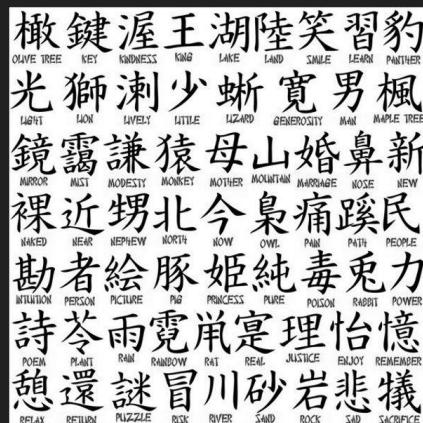 橄 鍵 渥 王 湖 陸 笑 習 豹
OLIVE TREE KEY KINDNESS KING LAKE LAND SMILE LEARN PANTHER
光 獅 溂 少 蜥 寛 男 楓
LIGHT LION LIVELY LITTLE LIZARD GENEROSITY MAN MAPLE TREE
鏡 靄 謙 猿 母 山 婚 鼻 新
MIRROR MIST MODESTY MONKEY MOTHER MOUNTAIN MARRIAGE NOSE NEW
裸 近 甥 北 今 梟 痛 蹊 民
NAKED NEAR NEPHEW NORTH NOW OWL PAIN PATH PEOPLE
勘 者 絵 豚 姫 純 毒 兎 力
INTUITION PERSON PICTURE PIG PRINCESS PURE POISON RABBIT POWER
詩 苓 雨 霓 鼡 寔 理 怡 憶
POEM PLANT RAIN RAINBOW RAT REAL JUSTICE ENJOY REMEMBER
憩 還 謎 冒 川 砂 岩 悲 犠
RELAX RETURN PUZZLE RISK RIVER SAND ROCK SAD SACRIFICE